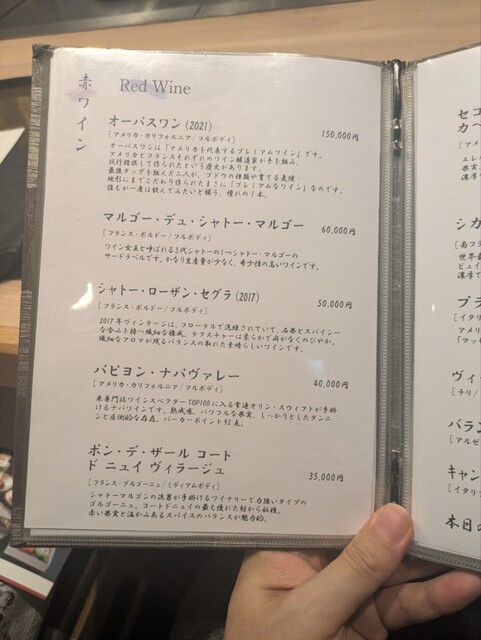 赤ワイン
Red Wine
オーパスワン(2021)
150,000円
[アメリカ・カリフォルニア/フルボディ]
オーパスワンは「アメリカを代表するプレミアムワイン」です。
アメリカとフランスそれぞれのワイン醸造家が手を組み、
試行錯誤して作られたという歴史があります。
最強タッグを組んだ二人が、ブドウの種類や育てる農場・
地形にまでこだわり作られたまさに「プレミアムなワイン」なのです。
誰もが一度は飲んでみたいと願う、憧れの1本。
マルゴー・デュ・シャトー・マルゴー
60,000円
[フランス・ボルドー/フルボディ]
ワイン女王と呼ばれる5代シャトーの1つシャトー・マルゴーの
サードラベルです。かなり生産量が少なく、希少性の高いワインです。
シャトー・ローザン・セグラ(2017)
50,000円
[フランス・ボルドー/フルボディ]
2017年ヴィンテージは、フローラルで洗練されていて、石果とスパイシー
な含みを持つ繊細な構成。テクスチャーは柔らかで角がなくのびやか。
繊細なアロマが残るバランスの取れた素晴らしいワインです。
パピヨン・ナパヴァレー
40,000円
[アメリカ・カリフォルニア/フルボディ]
米専門誌ワインスペクターTOP100に入る常連オリン・スウィフトが手掛
けるナパワインです。熟成感、パワフルな果実、しっかりとしたタンニ
ンと圧倒的な存在。パーカーポイント92点。
ポン・デ・ザール コート
ド ニュイ ヴィラージュ
35,000円
[フランス・ブルゴーニュ/ミディアムボディ]
シャトーマルゴンの次男が手掛けるワイナリーで力強いタイプの
ブルゴーニュ。コートドニュイの最も優れた村から収穫。
赤い果実と温かみあるスパイスのバランスが魅力的。
セコ
カベ
[アメ
エレ
果実
濃厚
シカ
[南フラ
世界最
ピュイ
濃厚で
プラ
[イタリ
アメリ
「マッセ
ヴィ
[チリ/
バラン
[アルゼ
キャン
[イタリ
本日の